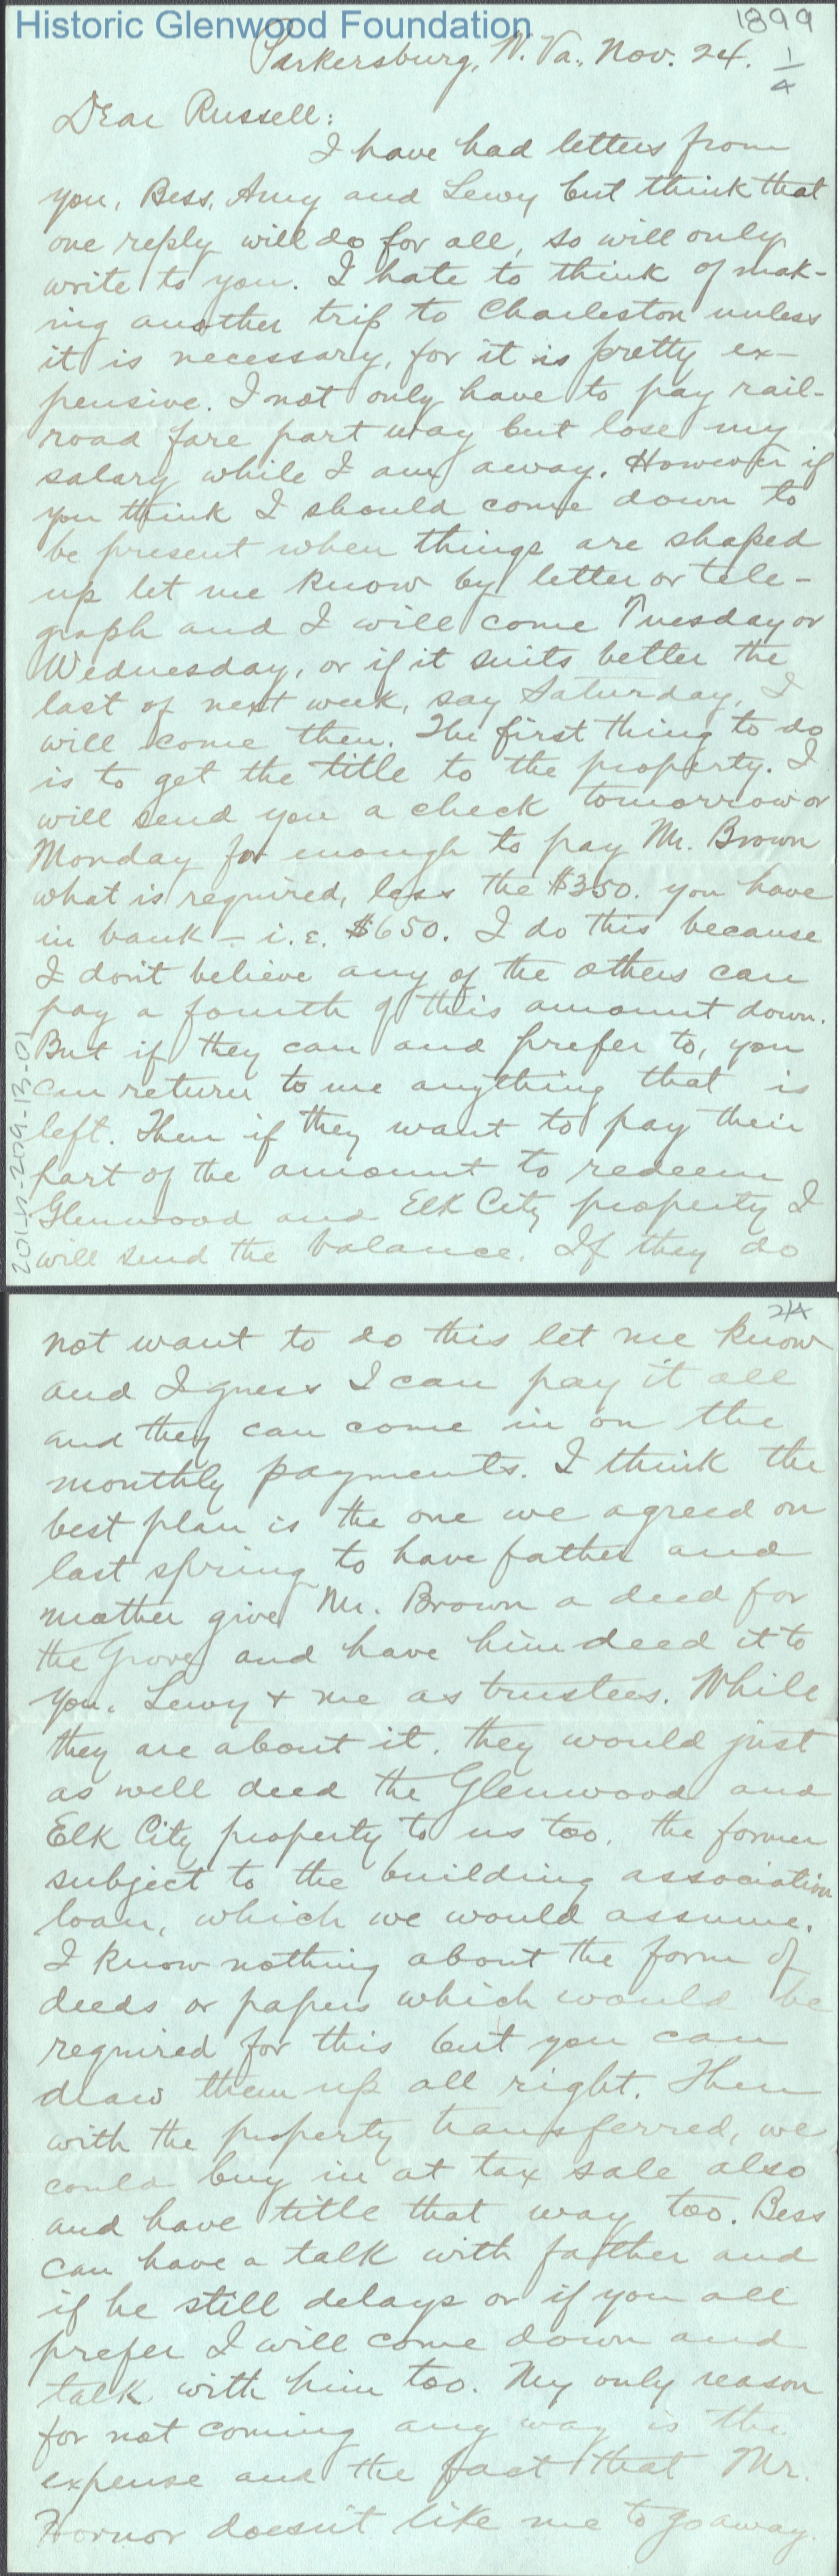 Historic Glenwood Foundation
1899
Parkersburg, W. Va., Nov. 24.
1/4
Dear Russell:
I have had letters from
you, Bess, Amy and Lewy but think that
one reply will do for all, so will only
write to you. I hate to think of mak-
ing another trip to Charleston unless
it is necessary, for it is pretty ex-
pensive. I not only have to pay rail-
road fare part way but lose my
salary while I am away. However if
you think I should come down to
be present when things are shaped
up let me know by letter or tele-
graph and I will come Tuesday or
Wednesday, or if it suits better the
last of next week, say Saturday, I
will come then. The first thing to do
is to get the title to the property. I
will send you a check tomorrow or
Monday for enough to pay Mr. Brown
what is required, less the $350. you have
in bank - i.e. $650. I do this because
I don't believe any of the others can
pay a fourth of this amount down.
But if they can and prefer to, you
can return to me anything that is
left. Then if they want to pay their
part of the amount to redeem
Glenwood and Elk City property I
will send the balance. If they do
2/4
not want to do this let me know
and I guess I can pay it all
and they can come in on the
monthly payments. I think the
best plan is the one we agreed on
last spring to have father and
mother give Mr. Brown a deed for
the Grove and have him deed it to
you, Lewy + me as trustees. While
they are about it, they would just
as well deed the Glenwood and
Elk City property to us too, the former
subject to the building association
loan, which we would assume.
I know nothing about the form of
deeds or papers which would be
required for this but you can
draw them up all right. Then
with the property transferred, we
could buy in at tax sale also
and have title that way too. Bess
can have a talk with father and
if he still delays or if you all
prefer I will come down and
talk with him too. My only reason
for not coming any way is the
expense and the fact that Mr.
Hornor doesn't like me to go away.